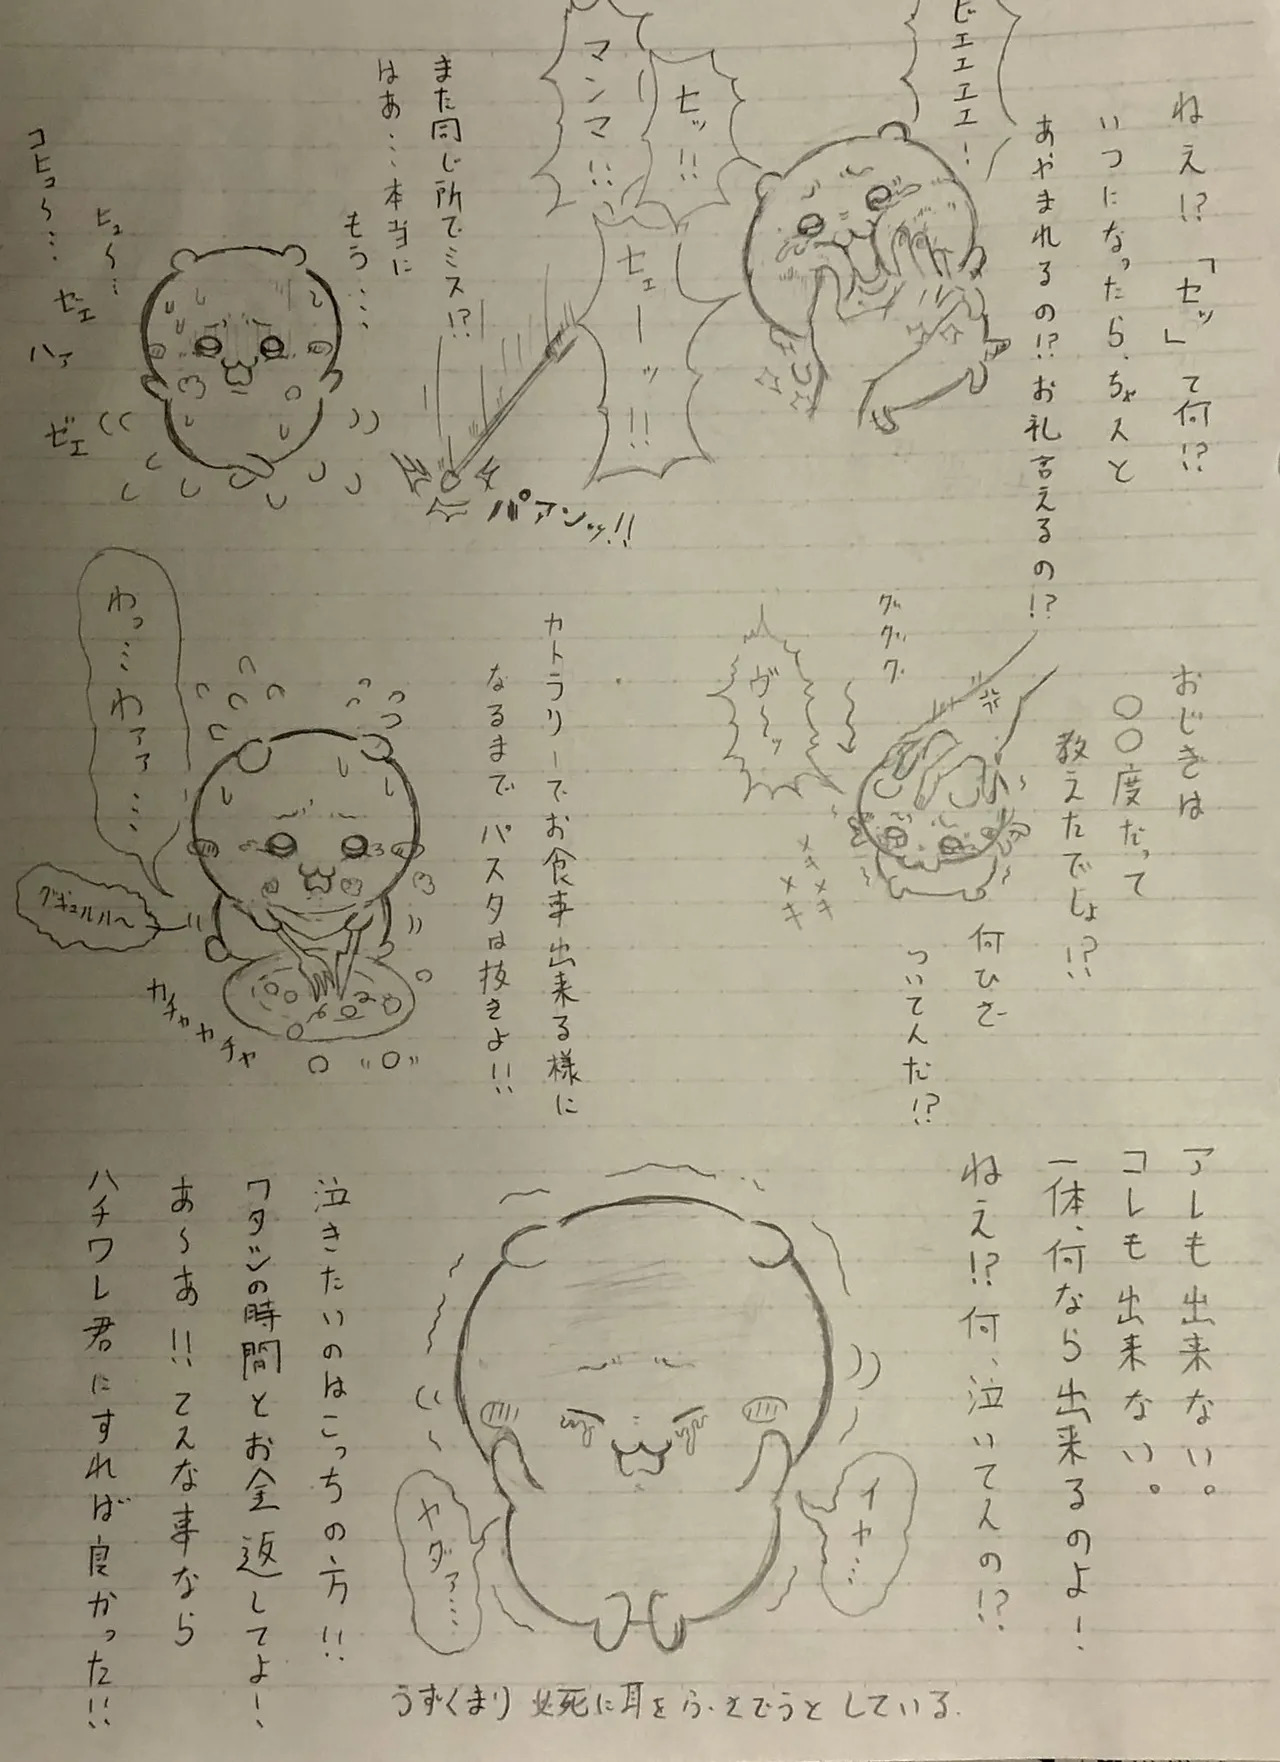 ねえ!?「セッ」て何!?
いつになったら、ちャスと
あやまれるの!?お礼言えるの!?
ビエエエエ!
セッ!!
マンマ!!
セェーーッ!!
パアンッ!!
また同じ所でミス!?
はあ…本当に
もう……
ヒュ〜…
コヒュ〜…
ゼエ
ハァ
ゼエ
おじきは
〇〇度だって
教えたでしょ!?
何ひざ
ついてんだ!?
ググググ
ヴ〜ッ
メキメキ
カトラリーでお食事出来る様に
なるまでパスタは抜きよ!!
わっ…わァァ…
グギュルル〜
カチャカチャ
アレも出来ない。
コレも出来ない。
一体、何なら出来るのよ!
ねえ!?何、泣いてんの!?
イヤ…
ヤダァ…
泣きたいのはこっちの方!!
ワタシの時間とお金返してよ!
あ〜あ!!てえな事なら
ハチワレ君にすれば良かった!!
うずくまり必死に耳をふさごうとしている。